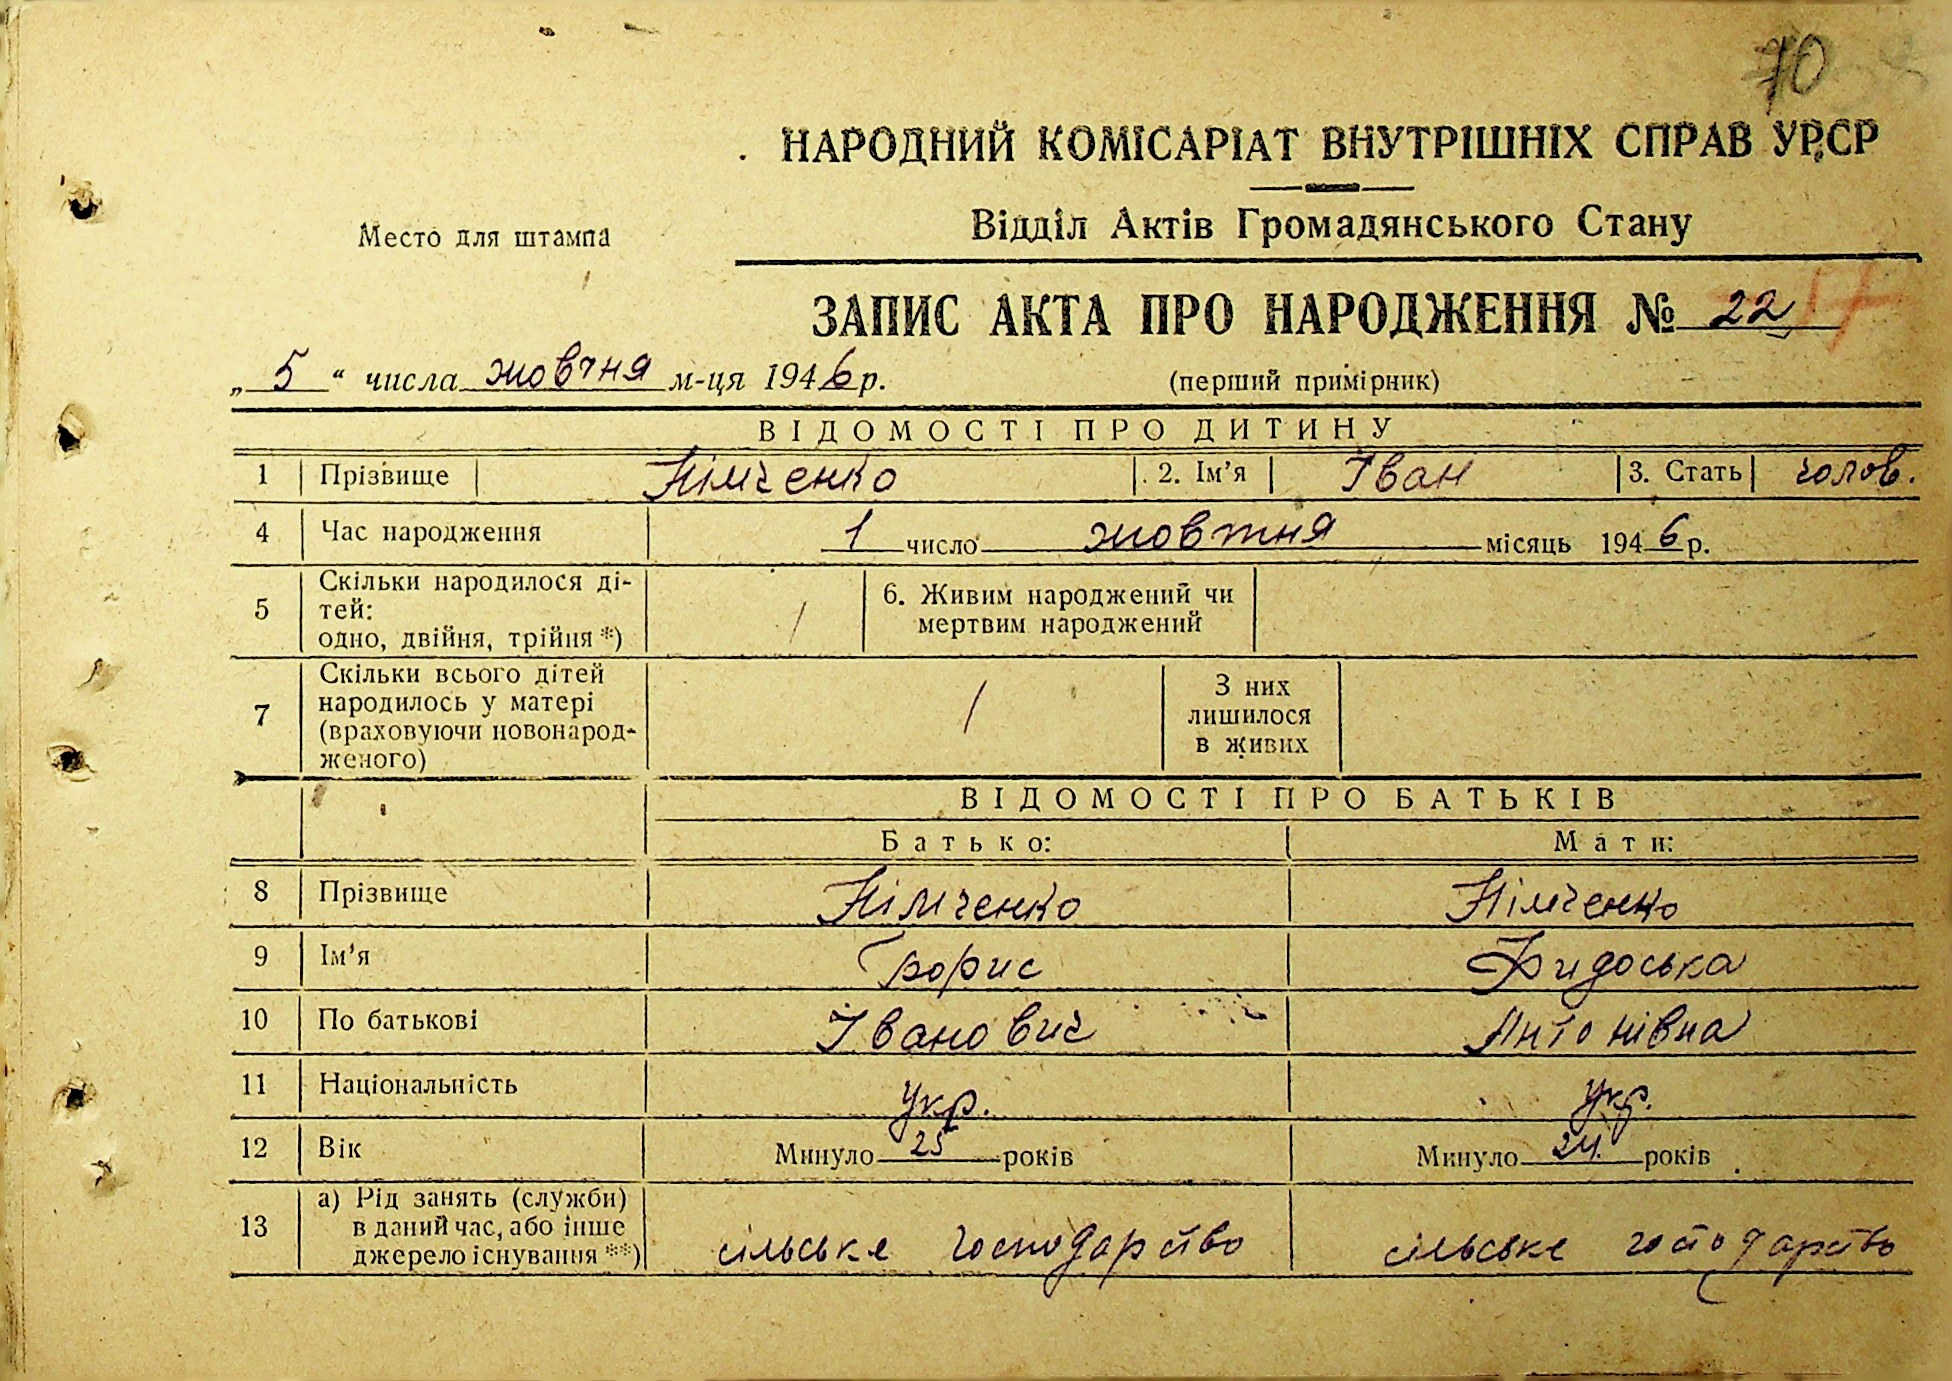 70
НАРОДНИЙ КОМІСАРІАТ ВНУТРІШНІХ СПРАВ УРСР
Место для штампа
Відділ Актів Громадянського Стану
ЗАПИС АКТА ПРО НАРОДЖЕННЯ № 22
„5“ числа жовтня м-ця 1946 р. (перший примірник)
ВІДОМОСТІ ПРО ДИТИНУ
1 Прізвище Німченко 2. Ім'я Іван 3. Стать чолов.
4 Час народження 1 число жовтня місяць 1946 р.
5 Скільки народилося ді-
тей:
одно, двійня, трійня *) / 6. Живим народжений чи
мертвим народжений
7 Скільки всього дітей
народилось у матері
(враховуючи новонарод-
женого) / З них
лишилося
в живих
ВІДОМОСТІ ПРО БАТЬКІВ
Батько: Мати:
8 Прізвище Німченко Німченко
9 Ім'я Борис Фидоська
10 По батькові Іванович Антонівна
11 Національність Укр. Укр.
12 Вік Минуло 25 років Минуло 24. років
13 а) Рід занять (служби)
в даний час, або інше
джерело існування **) сільське господарство сільське господарство